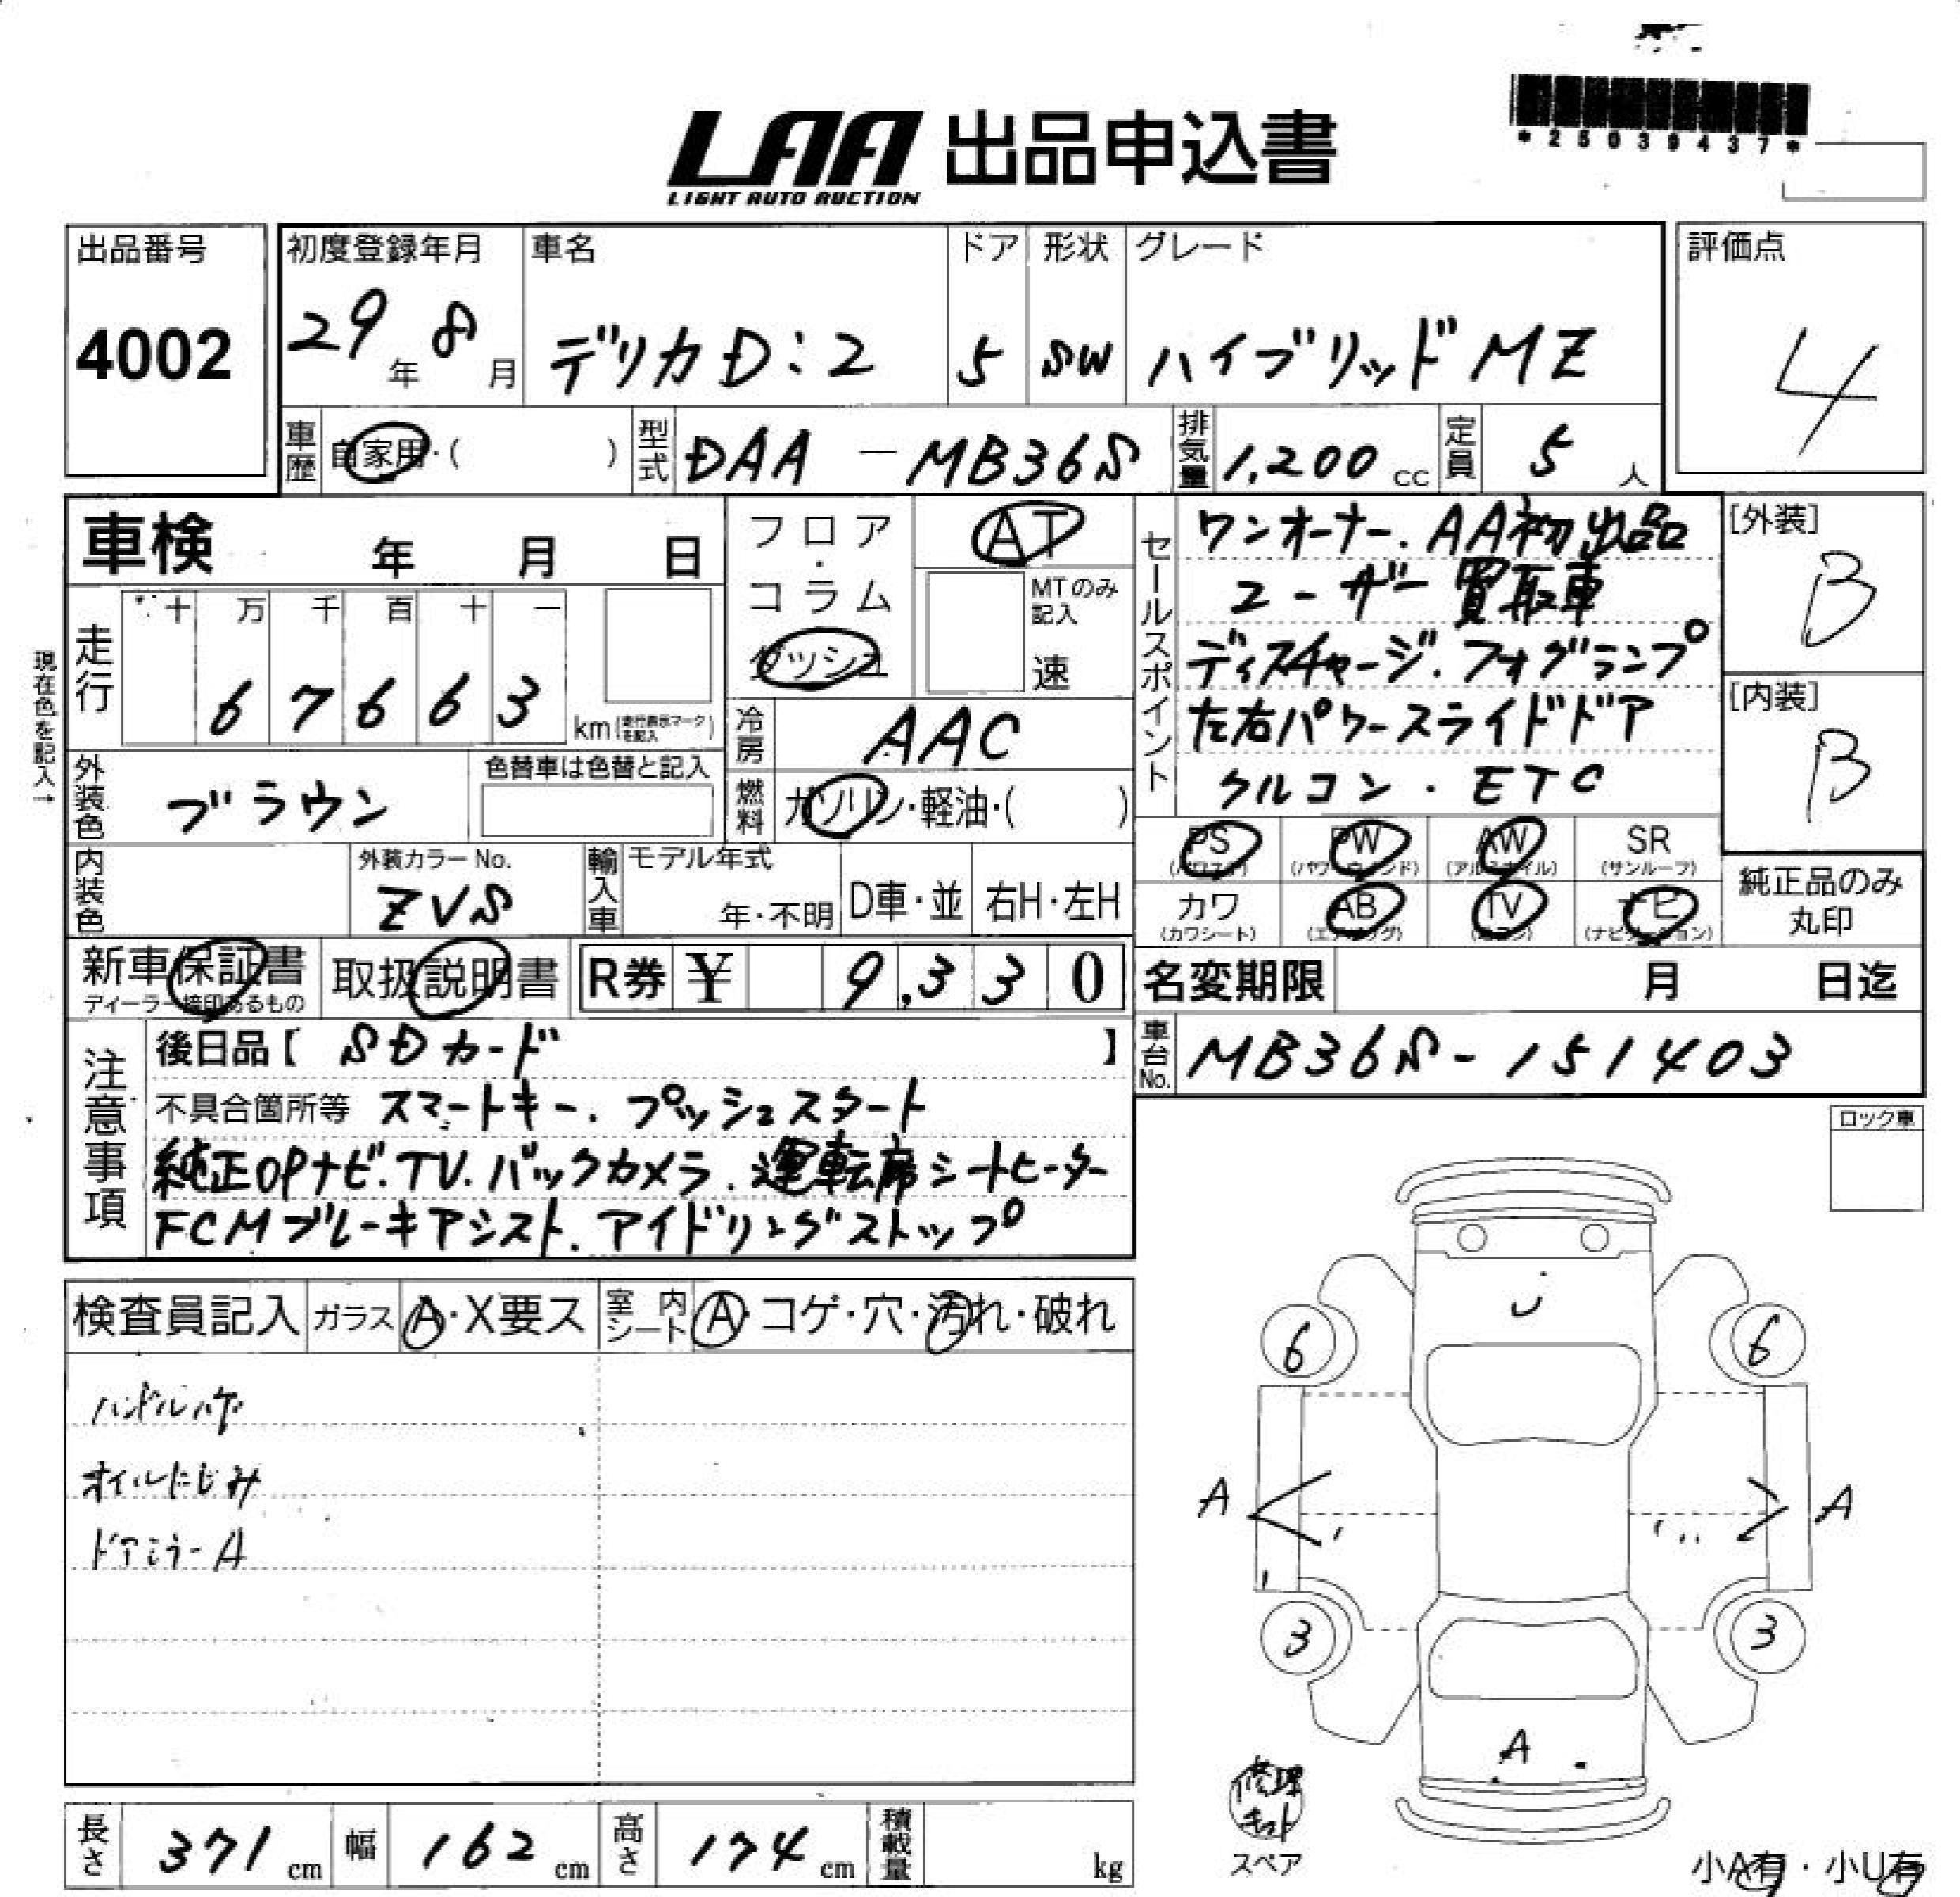 *25039437*
LAA 出品申込書
LIGHT AUTO AUCTION
出品番号
4002
初度登録年月
29年 8月
車名
デリカD:2
ドア
5
形状
SW
グレード
ハイブリッドMZ
評価点
4
車歴 自家用・( )
型式 DAA-MB36S
排気量 1,200 cc
定員 5 人
車検 年 月 日
フロア・コラム ダッシュ
AT
MTのみ記入
速
走行 十 万 千 百 十 一
67663 km(走行表示マークを記入)
現在色を記入→
冷房 AAC
燃料 ガソリン・軽油・( )
外装色 ブラウン
色替車は色替と記入
内装色
外装カラーNo.
ZVS
輸入車
モデル年式
年・不明
D車・並
右H・左H
セールスポイント
ワンオーナー.AA初出品
ユーザー買取車
ディスチャージ.フォグランプ
左右パワースライドドア
クルコン.ETC
[外装]
B
[内装]
B
PS (パワステ)
PW (パワーウィンド)
AW (アルミホイル)
SR (サンルーフ)
カワ (カワシート)
AB (エアバッグ)
TV
ナビ (ナビゲーション)
純正品のみ丸印
新車保証書
ディーラー捺印あるもの
取扱説明書
R券 ¥ 9,330
名変期限 月 日迄
車台No. MB36S-151403
注意事項
後日品【 SDカード 】
不具合箇所等 スマートキー.プッシュスタート
純正OPナビ.TV.バックカメラ.運転席シートヒーター
FCMブレーキアシスト.アイドリングストップ
ロック車
検査員記入 ガラス A・X要ス
室内シート A・コゲ・穴・汚れ・破れ
ハンドルハゲ
オイルにじみ
ドアミラーA
6
6
A
A
3
3
A
修理キット
スペア
小A有・小U有
長さ 371 cm
幅 162 cm
高さ 174 cm
積載量 kg